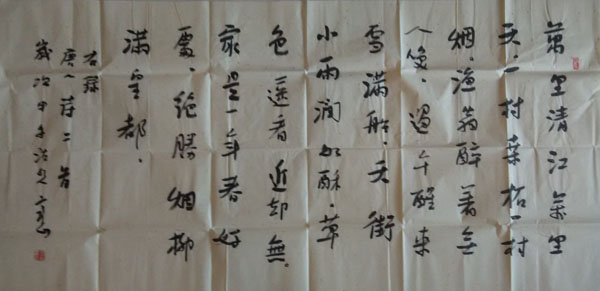 萬里清江萬里
天、一村桑柘一村
烟、漁翁醉著無
人喚、過午醒來
雪滿船、天街
小雨潤如酥、草
色遥看近却無、
最是一年春好
處、絶勝烟柳
滿皇都、
右錄
唐人詩二首
歲次甲午